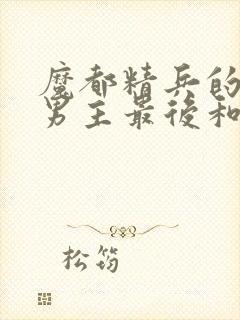 魔都精兵的
男主最後和
松筠